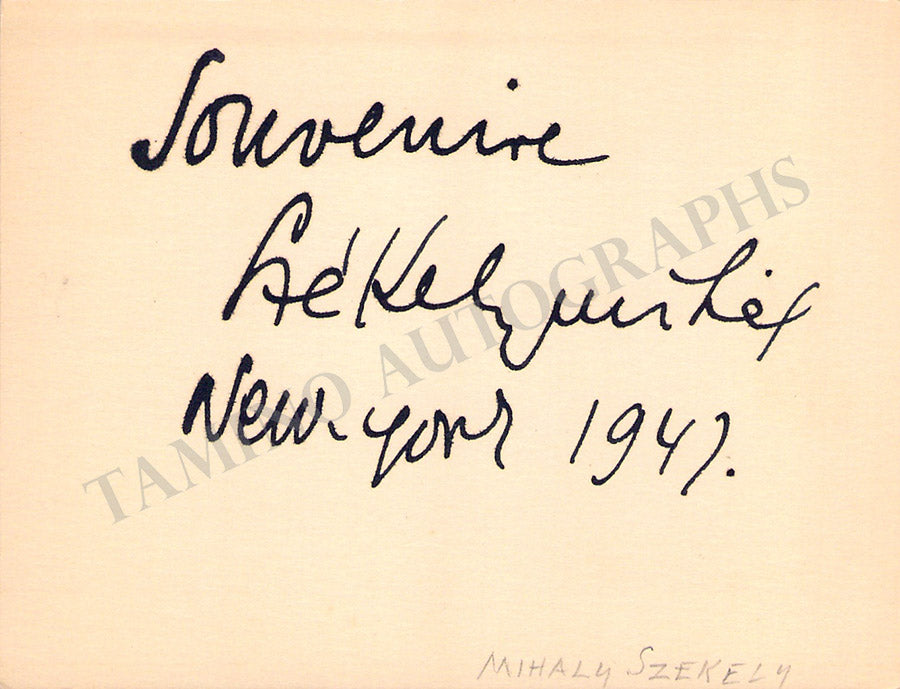 Souvenire
Székely Mihály
New-York 1947.
TAMINO AUTOGRAPHS
MIHALY SZEKELY